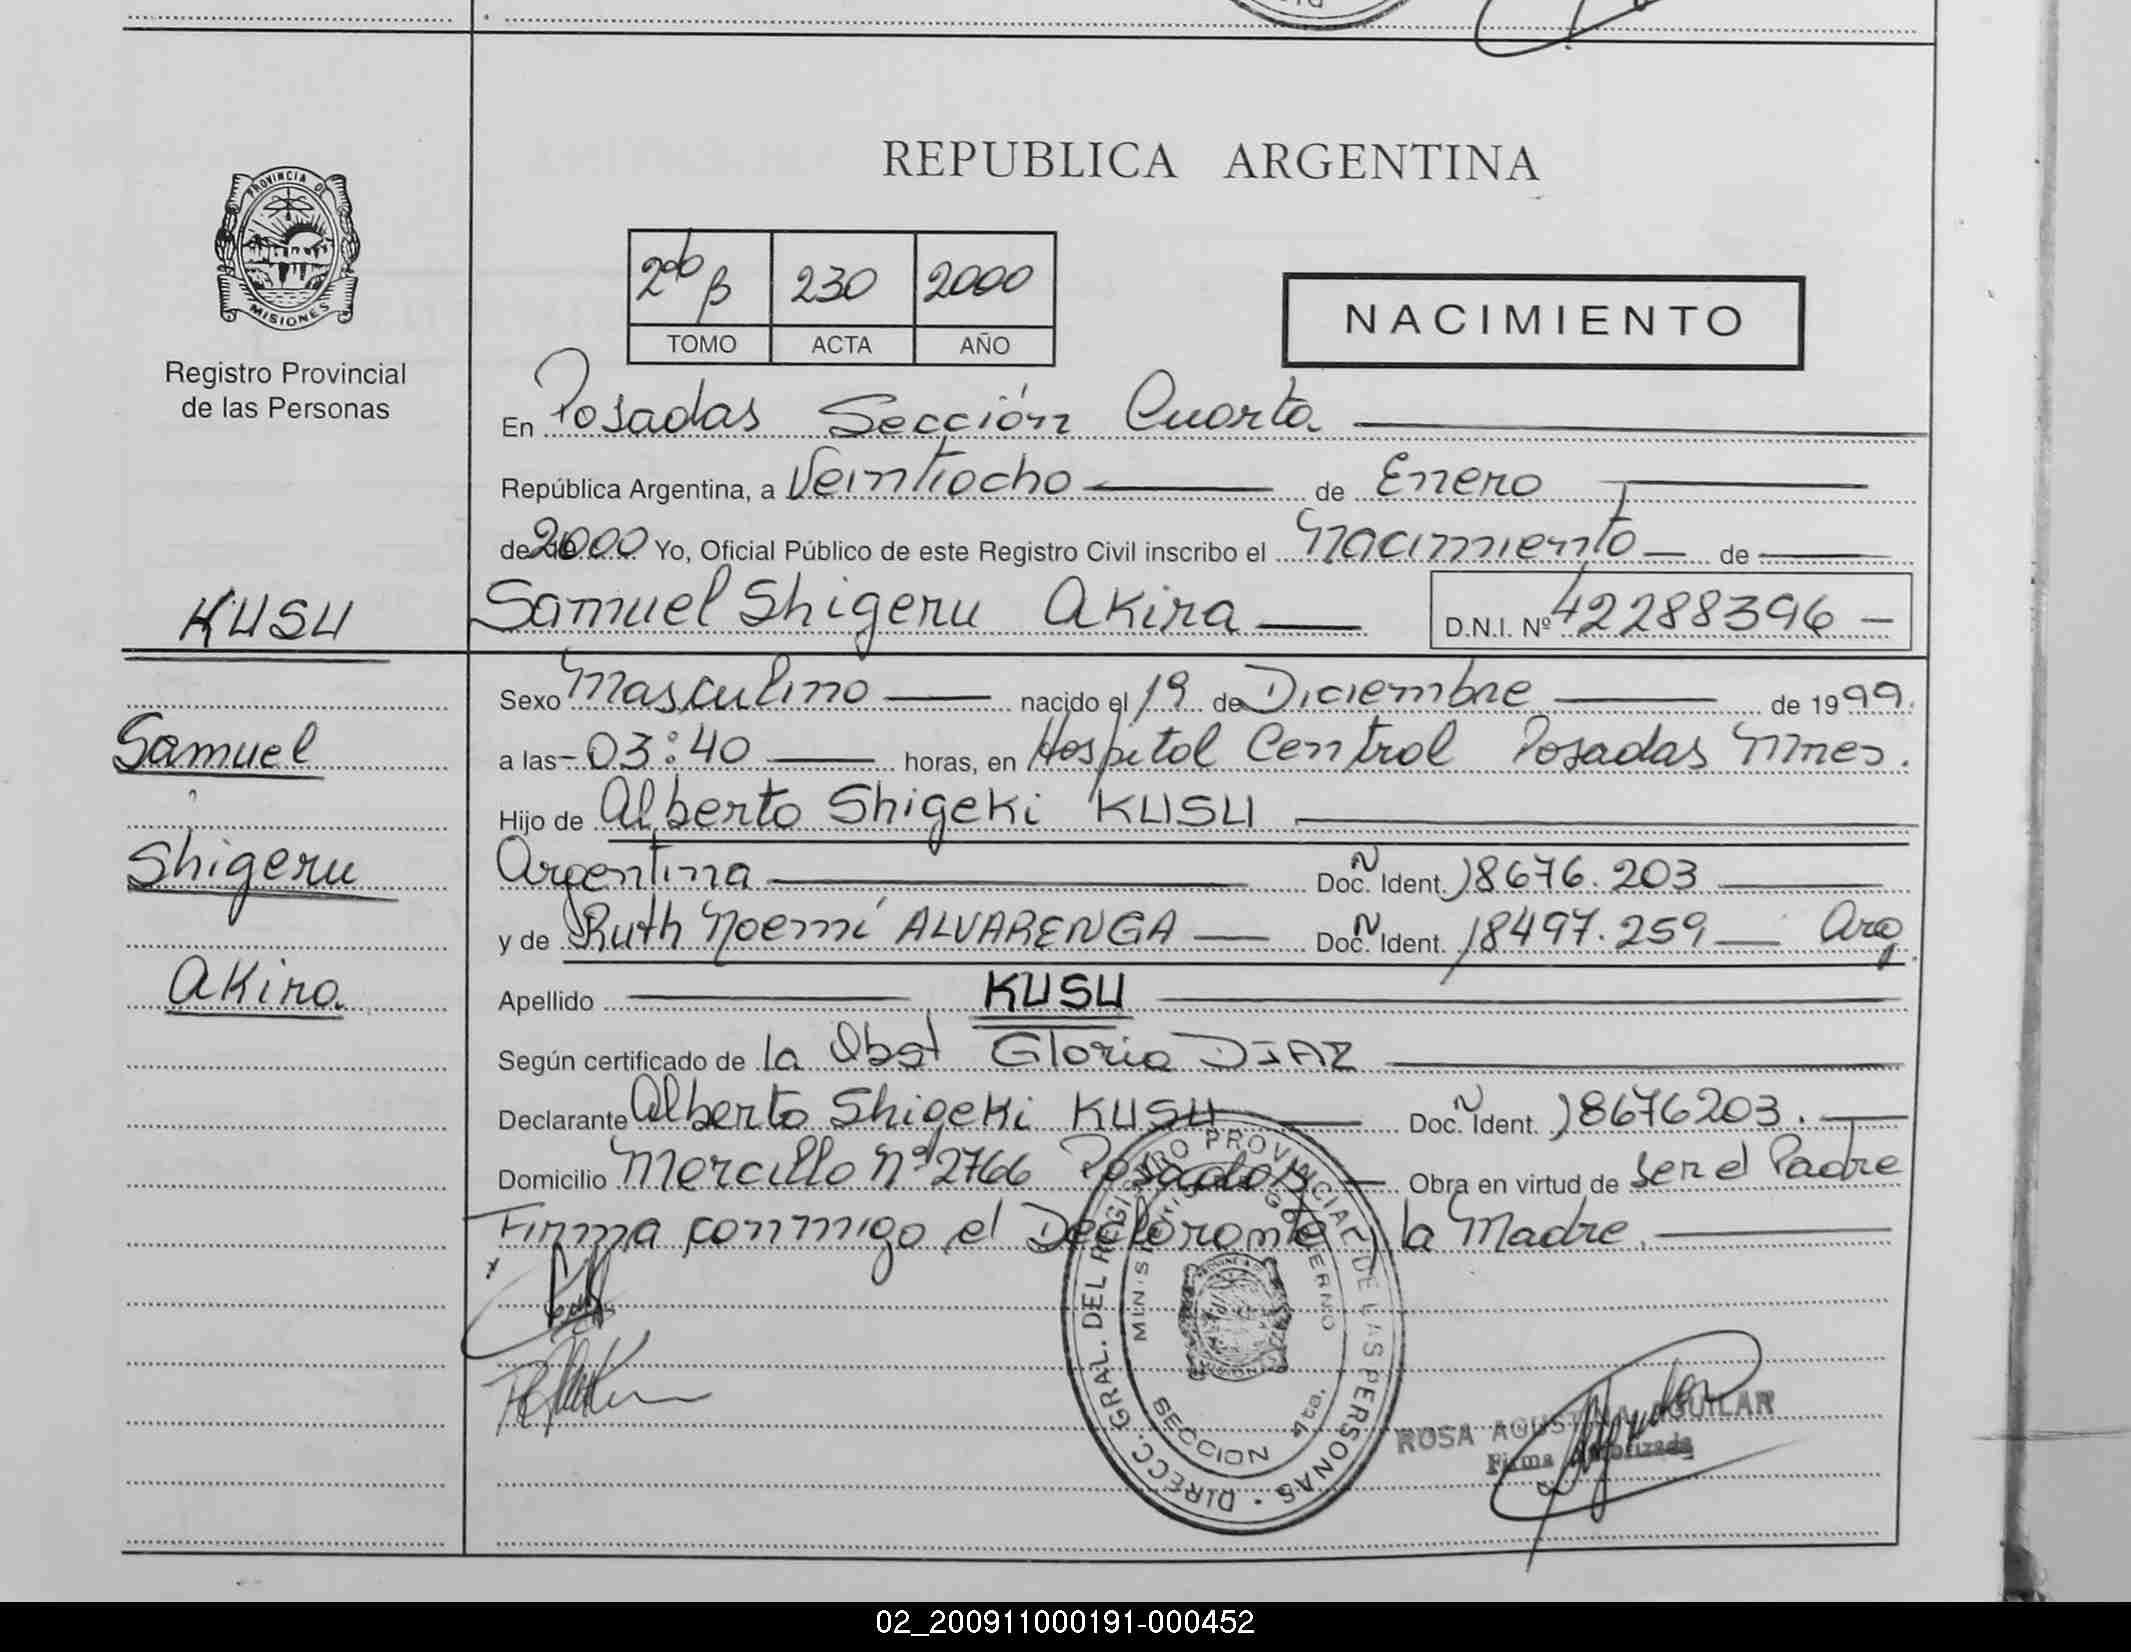 REPUBLICA ARGENTINA
PROVINCIA DE
MISIONES
Registro Provincial
de las Personas
2do B 230 2000
TOMO ACTA AÑO
NACIMIENTO
En Posadas Sección Cuarta
República Argentina, a Veintiocho de Enero
de 2000 Yo, Oficial Público de este Registro Civil inscribo el Nacimiento de
KUSU
Samuel Shigeru Akira D.N.I. Nº 42288396
Samuel
Shigeru
Akira
Sexo Masculino nacido el 19 de Diciembre de 1999.
a las 03:40 horas, en Hospital Central Posadas Mnes.
Hijo de Alberto Shigeki KUSU
Argentina Doc. Ident. 18676.203
y de Ruth Noemí ALVARENGA Doc. Ident. 18497.259 Arg.
Apellido KUSU
Según certificado de la Obst Gloria DIAZ
Declarante Alberto Shigeki KUSU Doc. Ident. 18676203.
Domicilio Morcillo Nº 2766 Posadas Obra en virtud de ser el Padre
Firma conmigo el Declarante y la Madre.
DIRECC. GRAL. DEL REGISTRO PROVINCIAL DE LAS PERSONAS
MINISTERIO GOBIERNO
SECCION 4ta.
ROSA AGUSTINA AGUILAR
Firma Autorizada
02_200911000191-000452